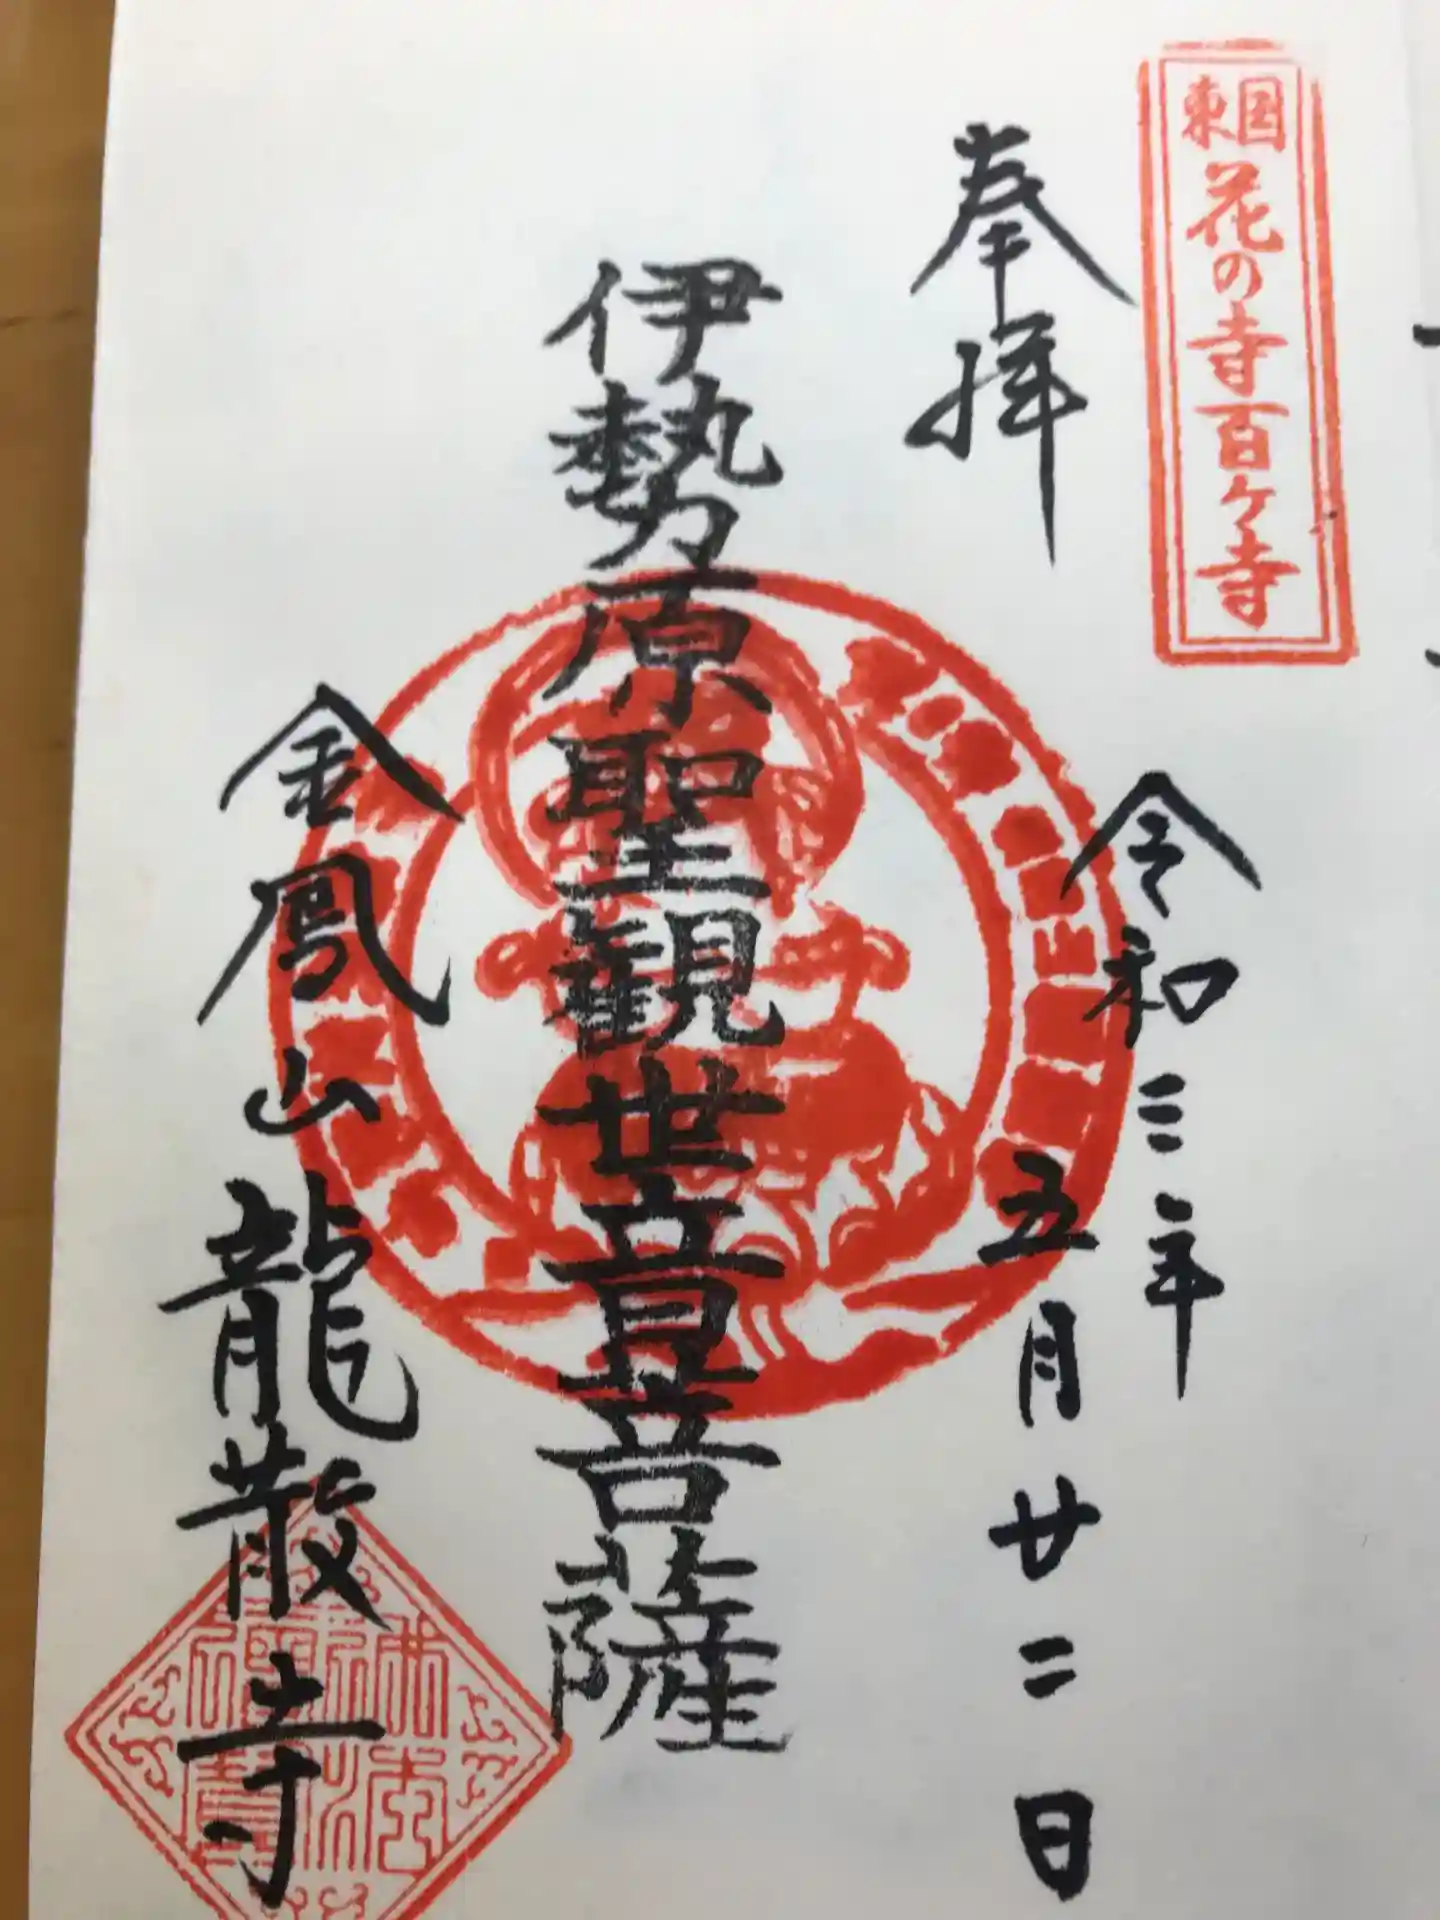 東国花の寺百ケ寺
奉拝
令和三年
五月廿二日
伊勢原聖観世音菩薩
金鳳山龍散寺